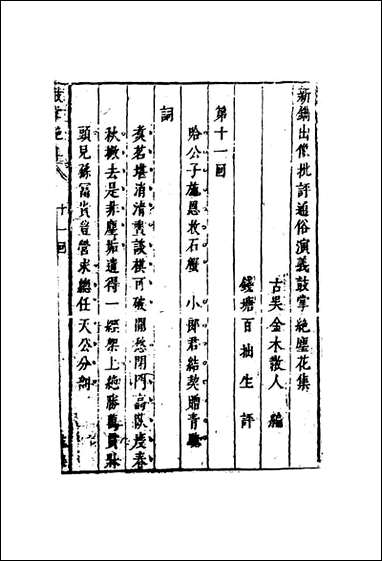 新鐫出像批評通俗演義鼓掌絕塵花集
古吳金木散人 編
錢塘百拙生 評
第十一回
哈公子施恩收石蟹 小郎君結契贈青驄
詞
煑茗堪消清晝談棋可破閒愁閉門高臥度春
秋撇去是非塵垢遺得一經架上絕勝萬貫牀
頭兒孫富貴豈營求總任天公分剖
鼓掌絕塵
十一回